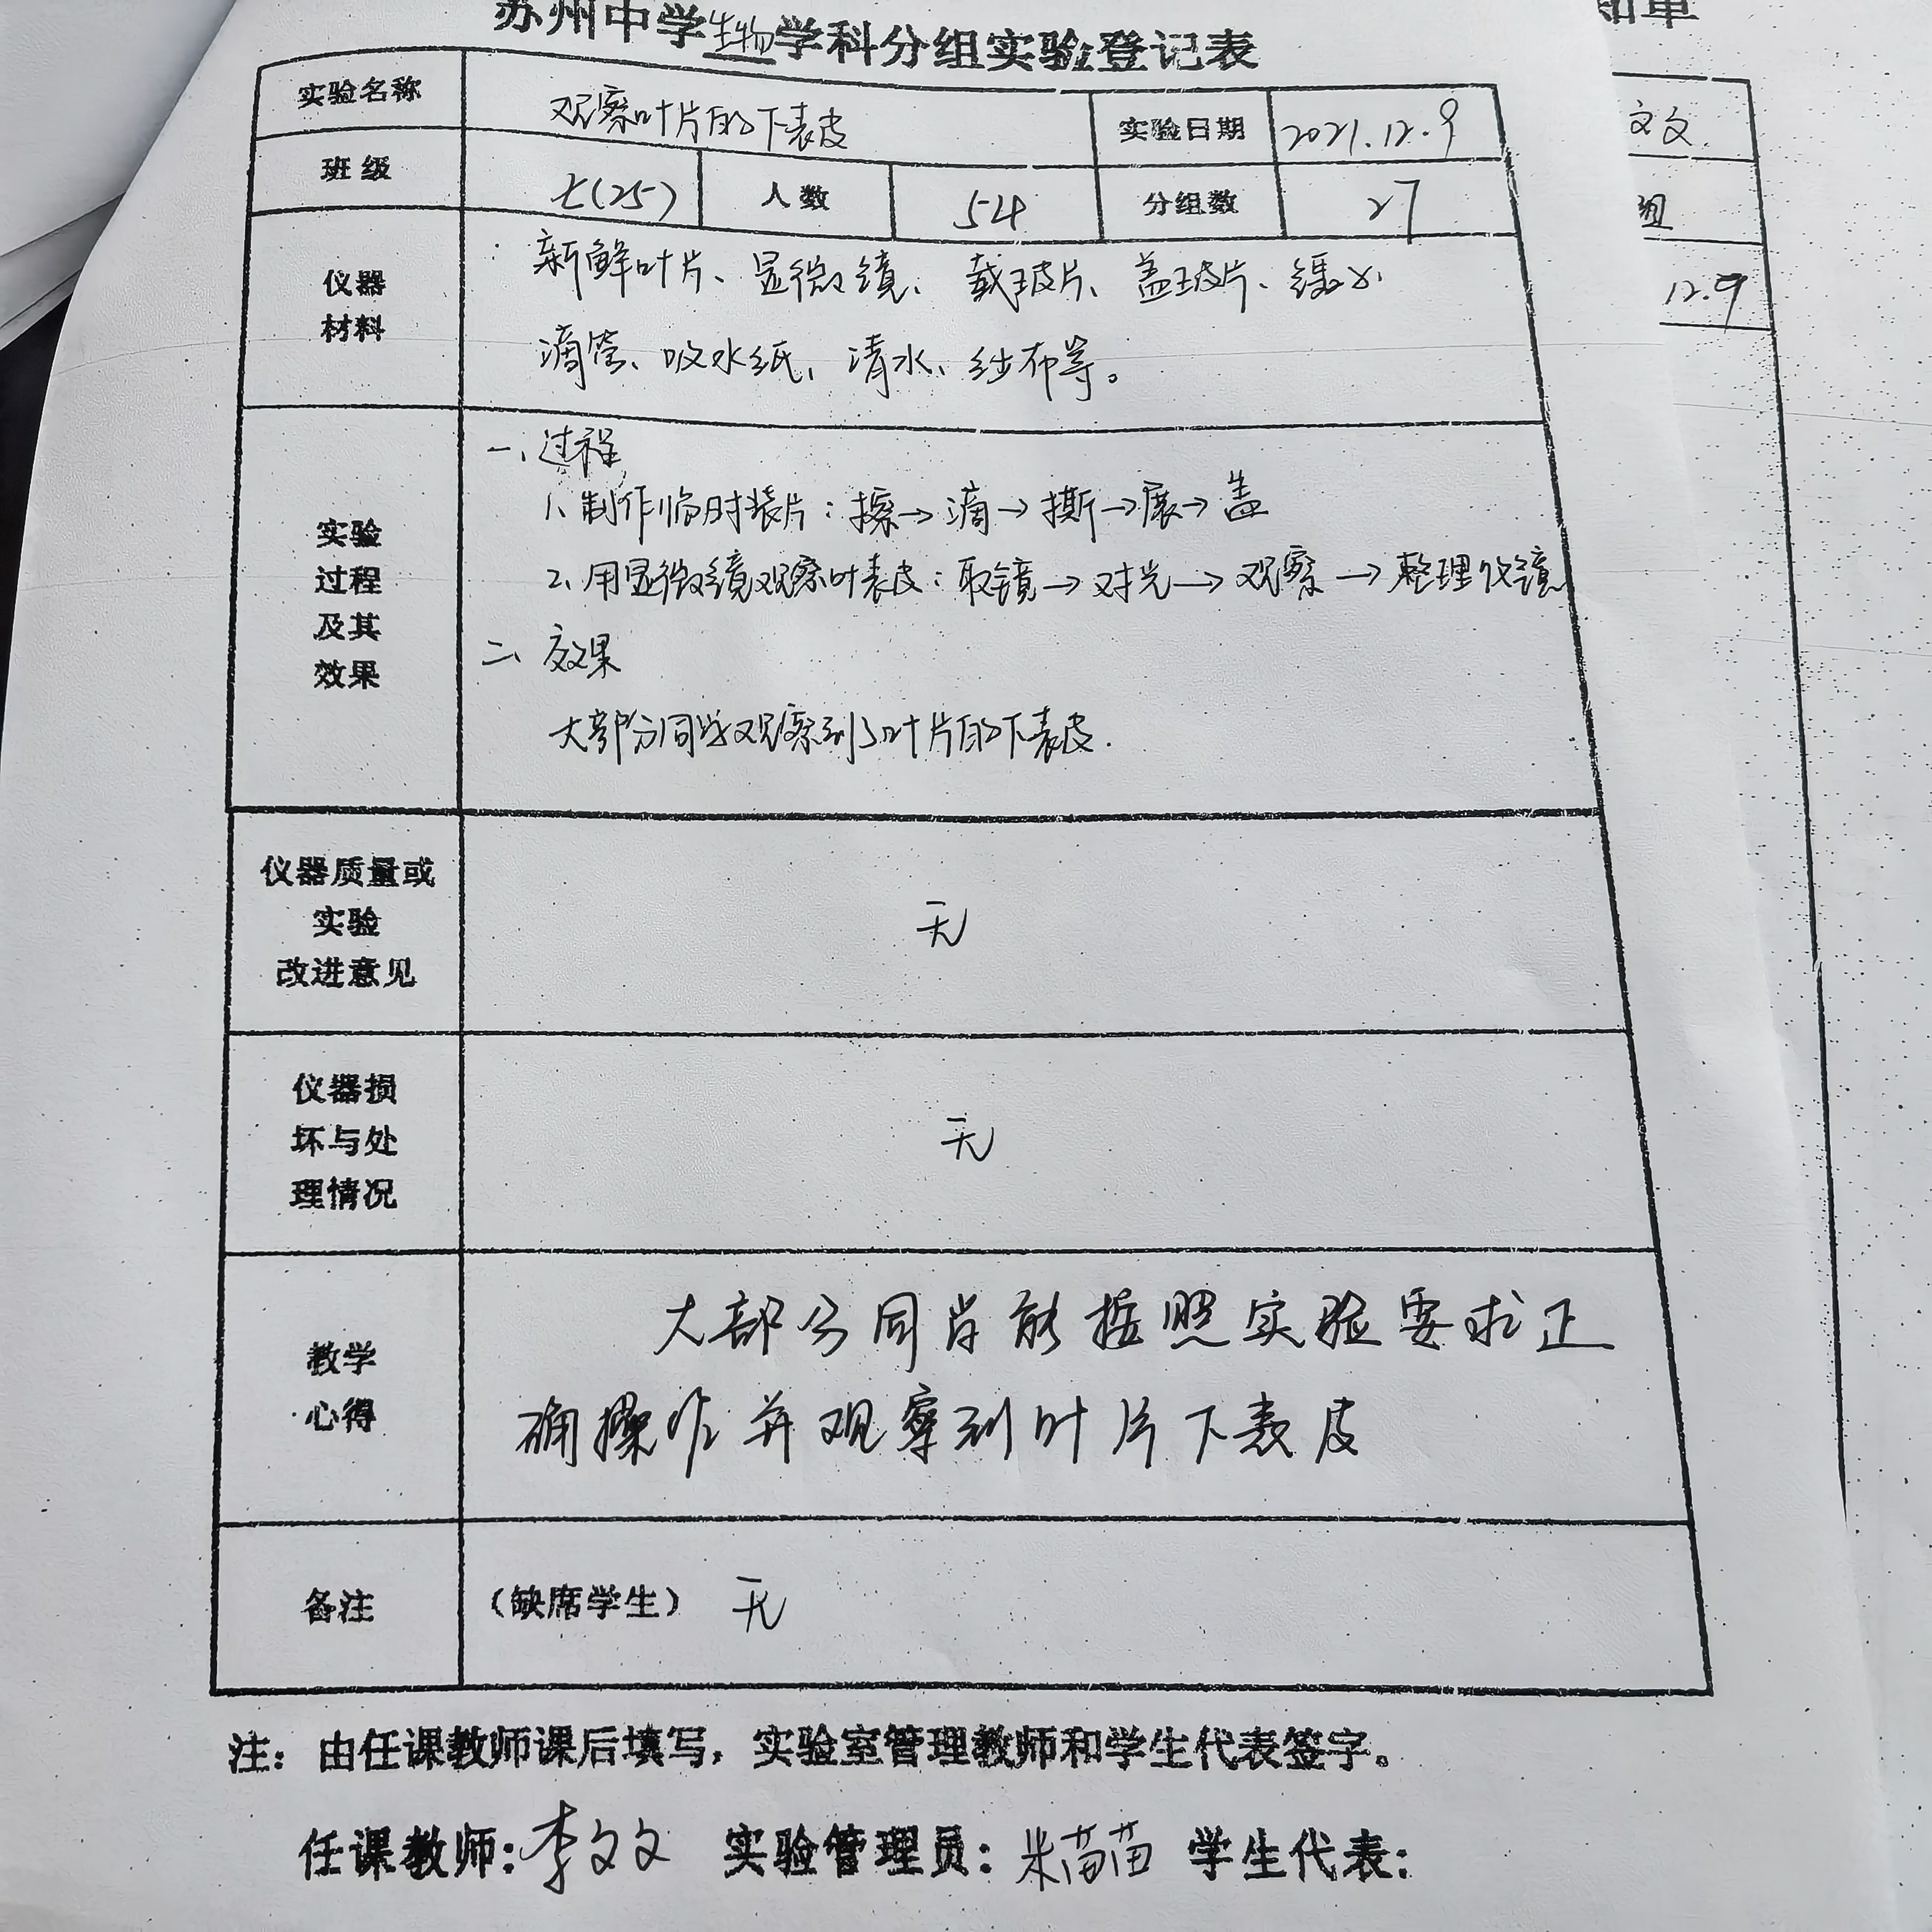 苏州中学生物学科分组实验登记表
知单
实验名称 观察叶片的下表皮 实验日期 2021.12.9
班级 七(25) 人数 54 分组数 27
仪器
材料
新鲜叶片、显微镜、载玻片、盖玻片、镊子
滴管、吸水纸、清水、纱布等。
实验
过程
及其
效果
一、过程
1、制作临时装片：擦→滴→撕→展→盖
2、用显微镜观察叶表皮：取镜→对光→观察→整理仪镜
二、效果
大部分同学观察到了叶片的下表皮.
仪器质量或
实验
改进意见
无
仪器损
坏与处
理情况
无
教学
心得
大部分同学能按照实验要求正
确操作并观察到叶片下表皮
备注 (缺席学生) 无
注：由任课教师课后填写，实验室管理教师和学生代表签字。
任课教师:李文文 实验管理员:米苗苗 学生代表:
文文
组
12.9